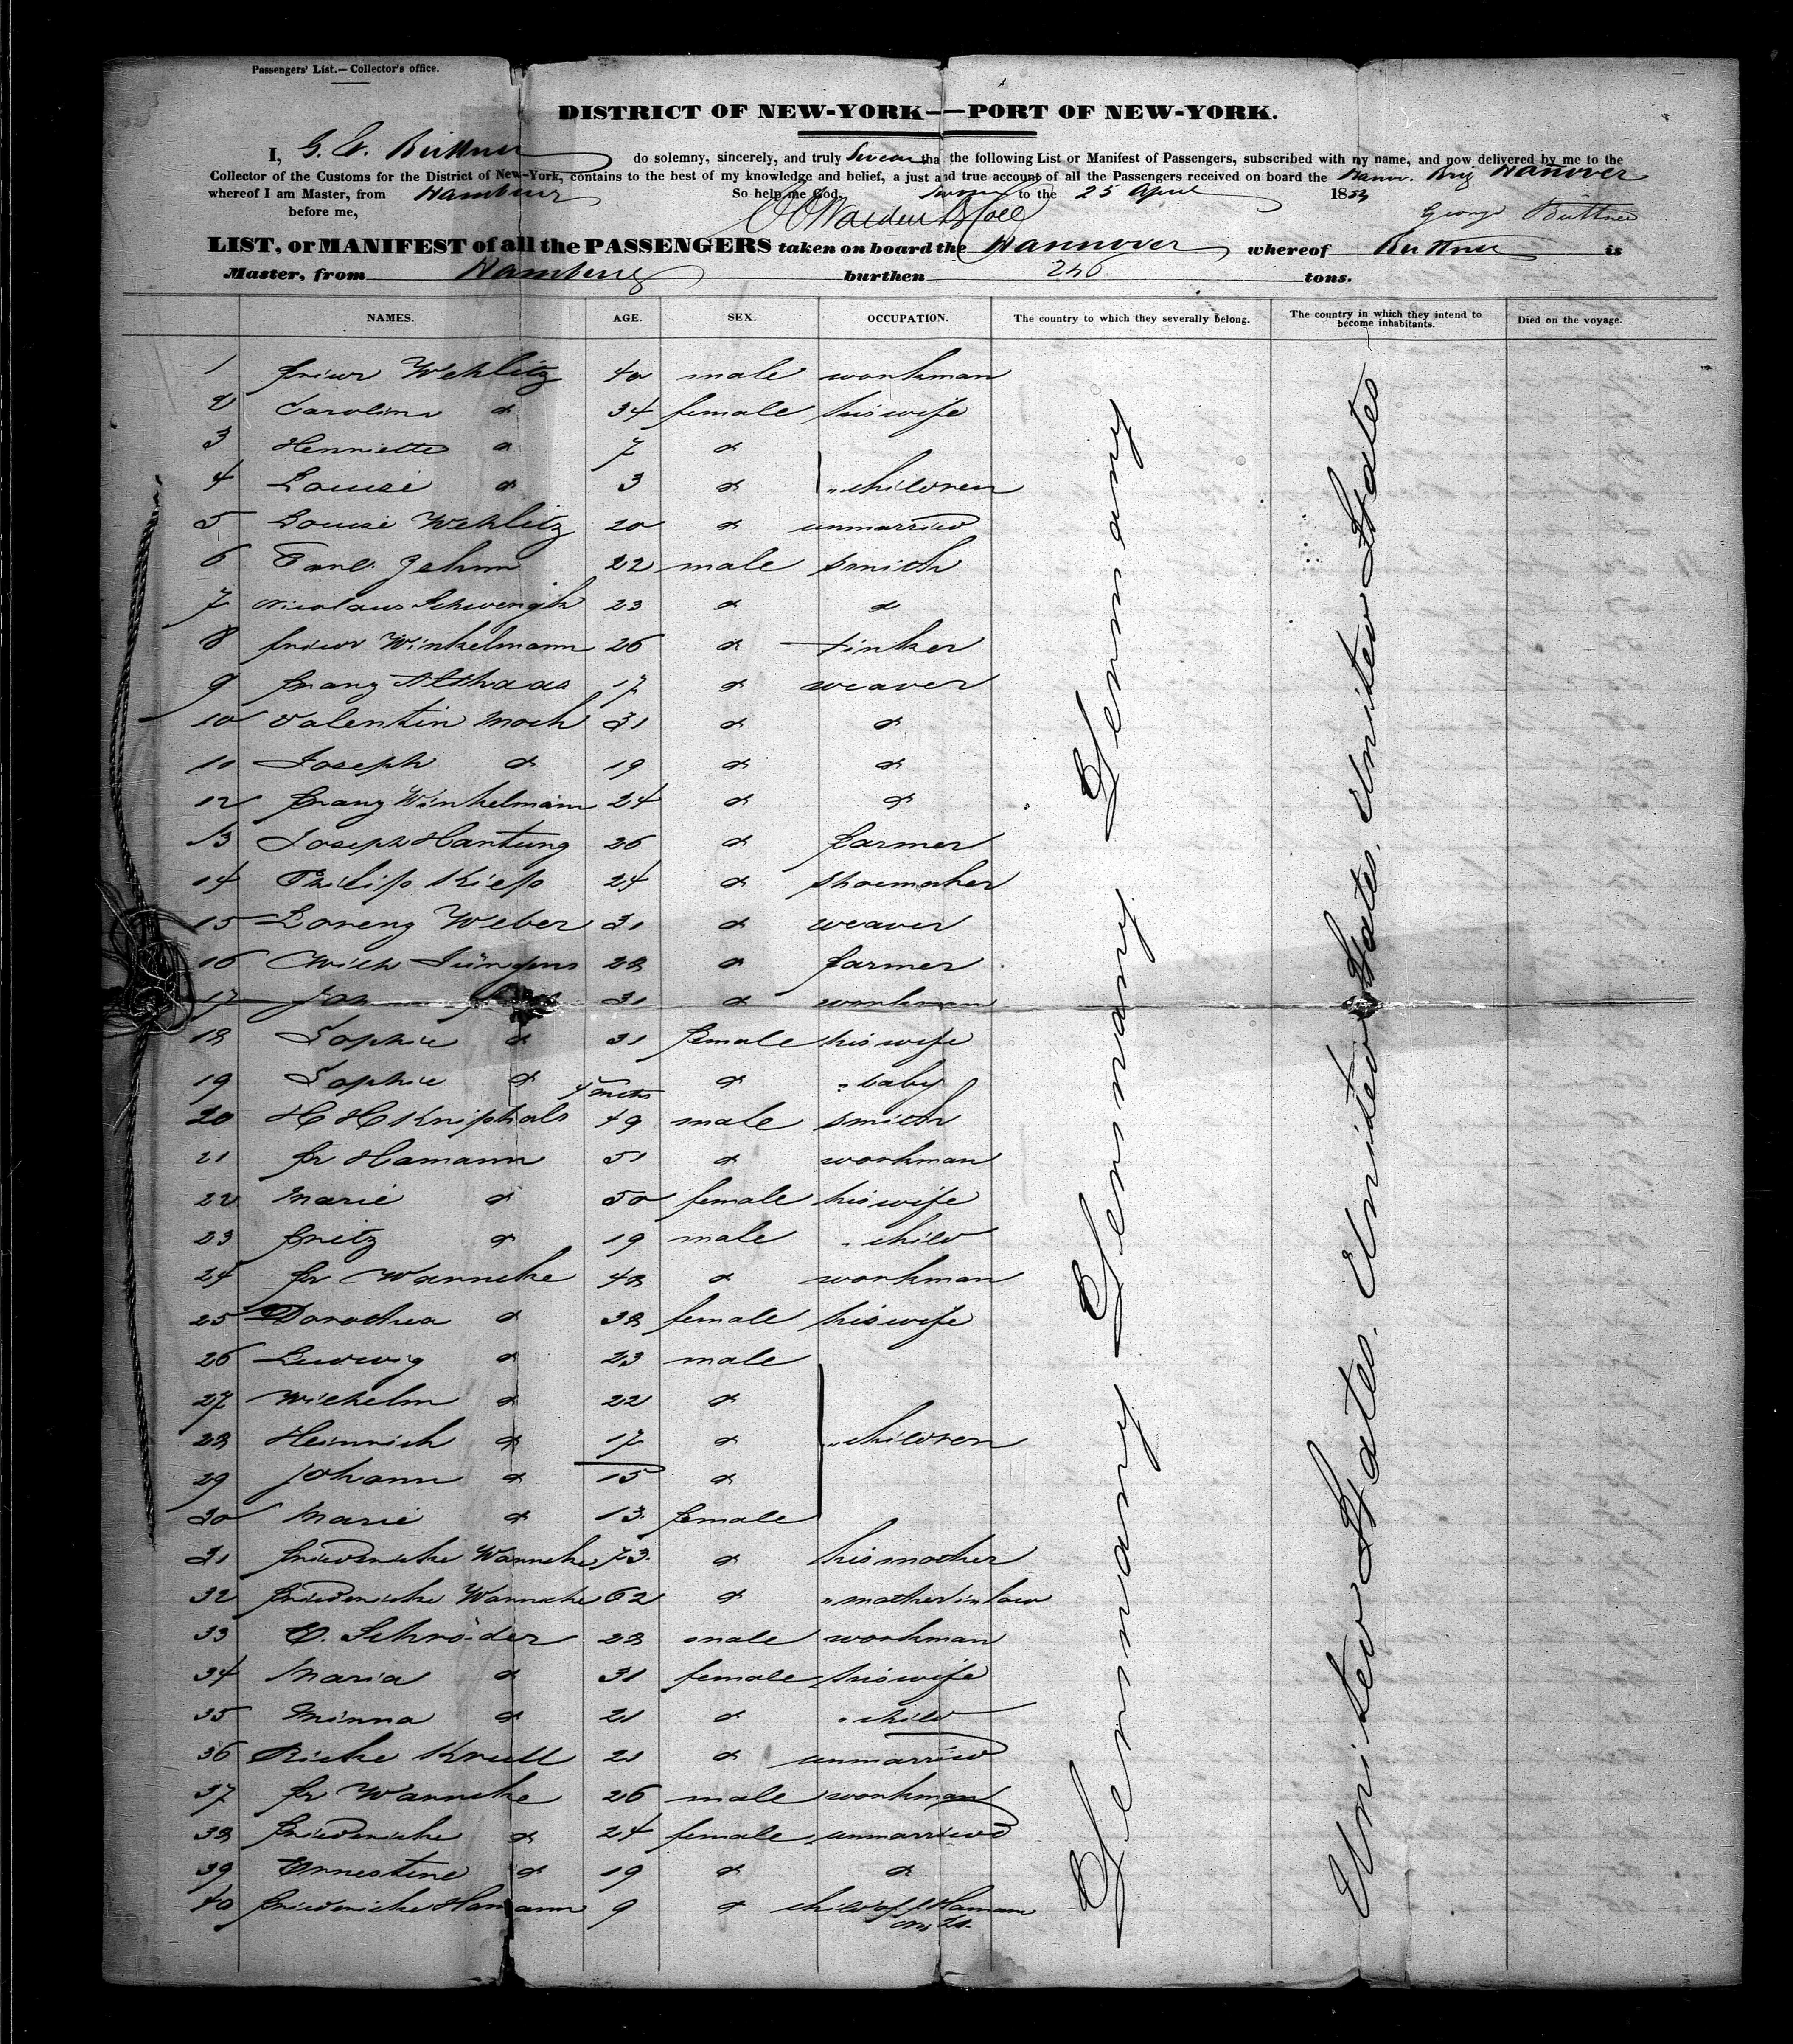 Passengers' List.—Collector's office.
DISTRICT OF NEW-YORK—PORT OF NEW-YORK.
I, G. Büttner do solemny, sincerely, and truly Swear that the following List or Manifest of Passengers, subscribed with my name, and now delivered by me to the
Collector of the Customs for the District of New-York, contains to the best of my knowledge and belief, a just and true account of all the Passengers received on board the Hanov. Brig Hanover
whereof I am Master, from Hamburg So help me God. Sworn to the 25 April 1853
before me, George Büttner
LIST, or MANIFEST of all the PASSENGERS taken on board the Hannover whereof Büttner is
Master, from Hamburg burthen 240 tons.
NAMES. AGE. SEX. OCCUPATION. The country to which they severally belong. The country in which they intend to become inhabitants. Died on the voyage.
1 friedr Wehlitz 40 male workman
2 Caroline do 34 female his wife
3 Henriette do 7 do
4 Louise do 3 do " children
5 Louise Wehlitz 20 do unmarried
6 Carl Jehnn 22 male smith
7 Nicolaus Schwengk 23 do do
8 friedr Winkelmann 26 do tinker
9 franz Althaas 17 do weaver
10 Valentin Moch 31 do do
11 Joseph do 19 do do
12 franz Winkelmann 24 do do
13 Joseph Hartung 26 do farmer
14 Philipp Kiep 24 do shoemaker
15 Lorenz Weber 31 do weaver
16 Wilh Jürgens 28 do farmer
17 Joh 31 do workman
18 Sophie do 31 female his wife
19 Sophie do 4 mths do " baby
20 H H Kniphals 49 male smith
21 fr Hamann 51 do workman
22 Marie do 50 female his wife
23 fritz do 19 male " child
24 fr Warneke 48 do workman
25 Dorothea do 38 female his wife
26 Ludwig do 23 male
27 Wilhelm do 22 do
28 Heinrich do 17 do " children
29 Johann do 15 do
30 Marie do 13 female
31 friederieke Warneke 73 do his mother
32 friederieke Warneke 62 do " mother in law
33 C. Schröder 28 male workman
34 Maria do 31 female his wife
35 Minna do 21 do " child
36 Rieke Krull 21 do unmarried
37 fr Warneke 26 male workman
38 friederieke do 24 female unmarried
39 Ernestine do 19 do do
40 friederieke Hamann 9 do child of f Hamann
on 21.
Germany Germany Germany Germany
United States. United States. United States